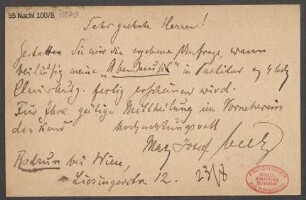 55 Nachl 100/B
Sehr geehrte Herren!
Gestatten Sie mir die ergebene Anfrage, wann
beiläufig meine „Abendmusik" in Partitur
fertig erscheinen wird.
Für Ihre gütige Mittheilung im Vorneherein
hochachtungsvoll
Max Josef Beer
Rodaun bei Wien,
Liesingerstr. 12. 23/8